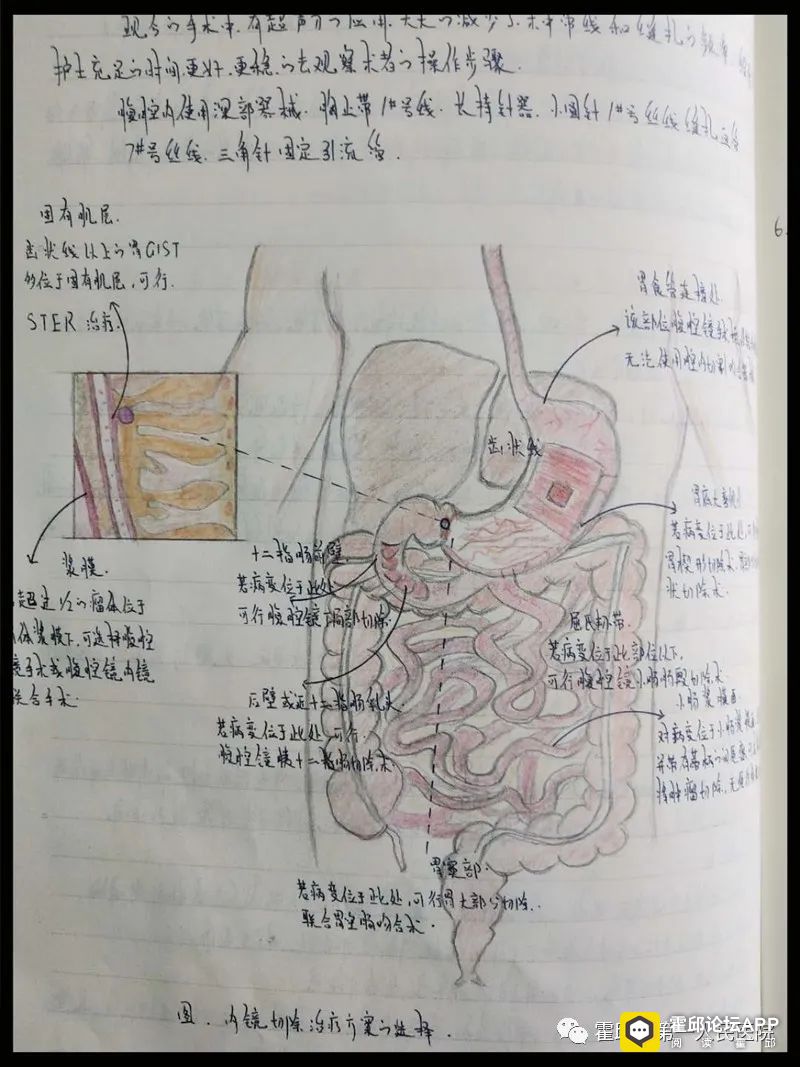 现今的手术中,有超声刀的应用,大大的减少了术中带线和缝扎的频率,
护士充足的时间更好、更稳的去观察术者的操作步骤.
腹腔内使用深部器械.胸止带1#号线.长持针器.小圆针1#号丝线缝扎
7#号丝线.三角针固定引流管.
固有肌层.
齿状线以上的胃GIST
位于固有肌层,可行.
STER 治疗.
胃食管连接处.
该部位腹腔镜手术
无法使用腔内切割
齿状线
胃底大弯
若病变位于此处,可
胃楔形切除术,
状切除术.
浆膜.
超过1/2的瘤体位于
体浆膜下,可选择腹腔
镜手术或腹腔镜内镜
联合手术.
十二指肠前壁
若病变位于此处
可行腹腔镜下局部切除.
屈氏韧带.
若病变位于此部位以下,
可行腹腔镜小肠肠段切除术.
后壁或近十二指肠乳头.
若病变位于此处,可行.
腹腔镜胰十二指肠切除术.
小肠浆膜面
对病变位于小肠浆膜
并带有
肿瘤切除,无
胃窦部.
若病变位于此处,可行胃大部分切除.
联合胃空肠吻合术.
图.内镜切除治疗方案的选择.
霍邱 第一人民医院
霍邱论坛APP
阅读霍邱